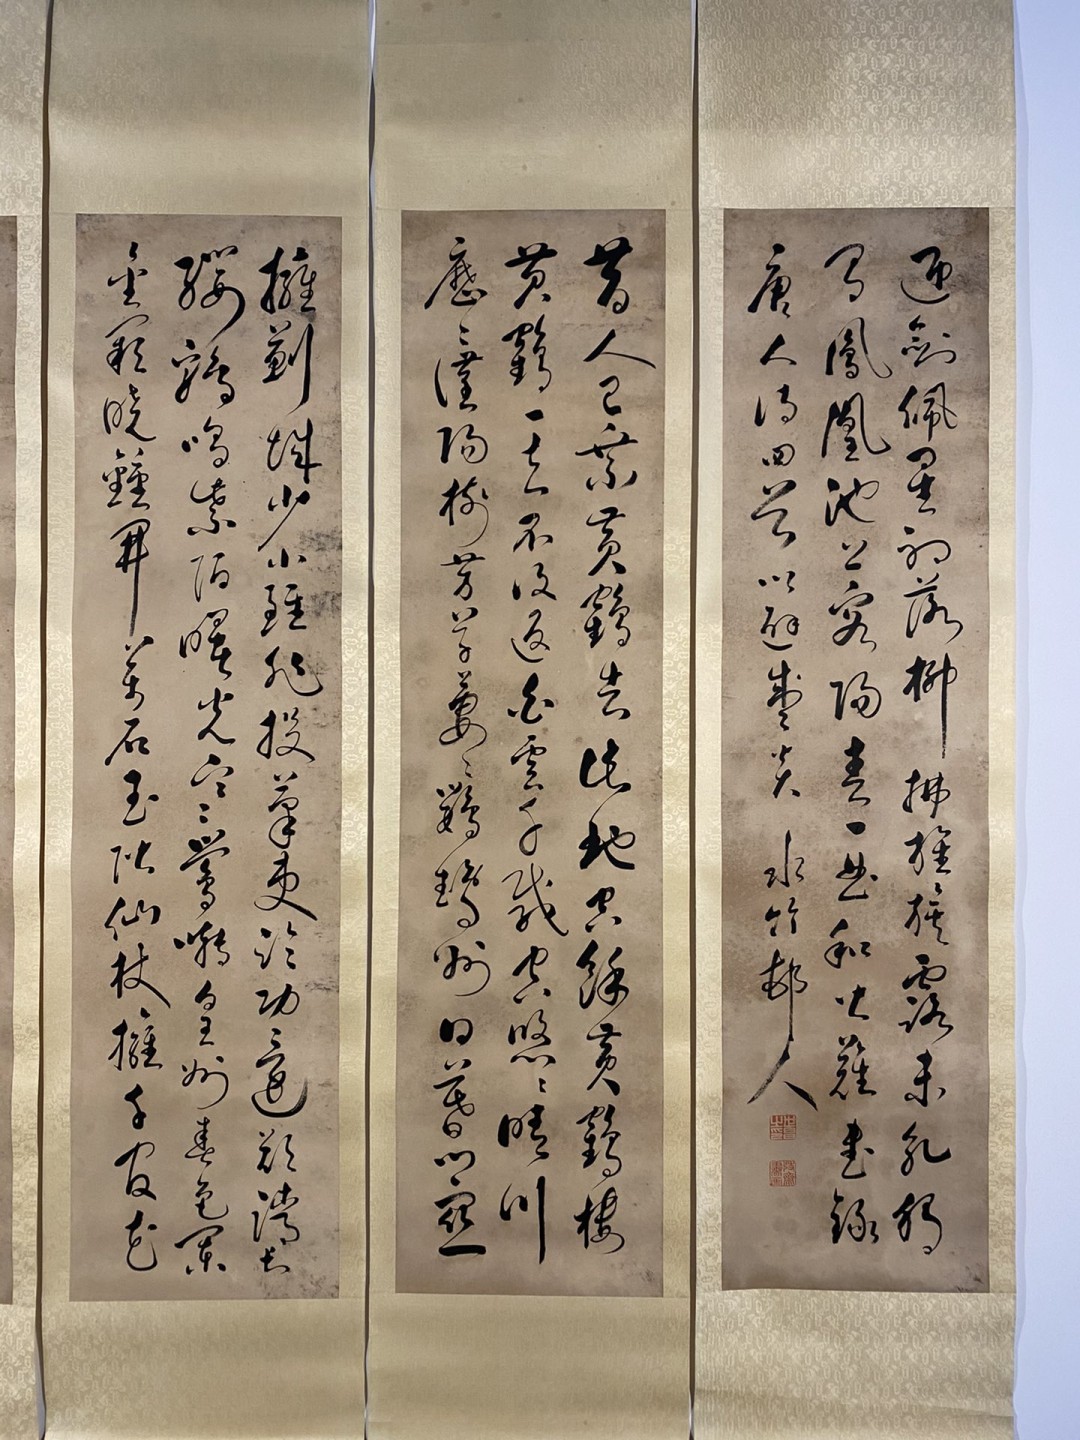 迎劍佩星初落柳拂旌旗露未乾獨
有鳳凰池上客陽春一曲和皆難書錄
唐人詩四首以避炎 水竹邨人
昔人已乘黃鶴去此地空餘黃鶴樓
黃鶴一去不復返白雲千載空悠〻晴川
歷〻漢陽樹芳草萋〻鸚鵡洲日暮鄉關
擁薊城少小雖非投筆吏論功還欲請長
纓雞鳴紫陌曙光寒鶯囀皇州春色闌
金闕曉鐘開萬戶玉階仙仗擁千官花